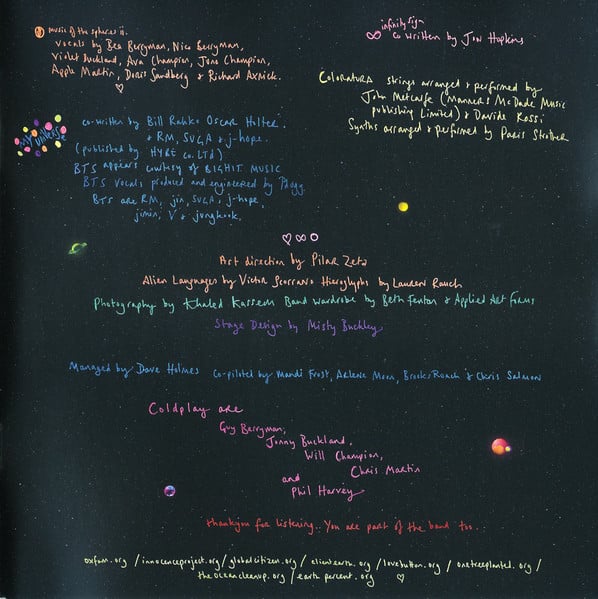 music of the spheres ii.
vocals by Bea Berryman, Nico Berryman,
Violet Buckland, Ava Champion, Juno Champion,
Apple Martin, Doris Sandberg & Richard Axnick.
infinity sign
∞ co written by Jon Hopkins
COLORATURA strings arranged & performed by
John Metcalfe (Manners McDade Music
publishing Limited) & Davide Rossi
Synths arranged & performed by Paris Strother
my universe
co-written by Bill Rahko Oscar Holter.
& RM, SUGA & j-hope.
(published by HYBE co. LTd)
BTS appears courtesy of BIGHIT MUSIC
BTS vocals produced and engineered by Pdogg.
BTS are RM, jin, SUGA, j-hope,
jimin, V & jungkook.
♡ ∞ O
Art direction by Pilar Zeta
Alien Languages by Victor Scorrano Hieroglyphs by Lauren Rauch
Photography by Khaled Kassem Band wardrobe by Beth Fenton & Applied Art Forms
Stage Design by Misty Buckley
Managed by Dave Holmes co-piloted by Mandi Frost, Arlene Moon, Brooks Roach & Chris Salmon
Coldplay are
Guy Berryman,
Jonny Buckland,
Will Champion,
Chris Martin
and
Phil Harvey
thankyou for listening.. You are part of the band too...
oxfam.org / innocenceproject.org / globalcitizen.org / clientearth.org / lovebutton.org / onetreeplanted.org /
theoceancleanup.org / earthpercent.org ♡